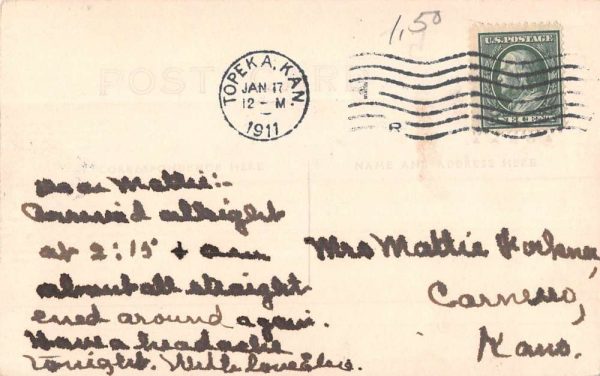 1.50
U.S. POSTAGE
ONE CENT
TOPEKA, KAN.
JAN 17
12-M
1911
R
POST CARD
CORRESPONDENCE HERE
NAME AND ADDRESS HERE
Dear Mattie:-
Arrived allright
at 2:15 + am
about all straight
ened around again.
Have a headache
tonight. With love
Mrs Mattie
Carneiro,
Kans.